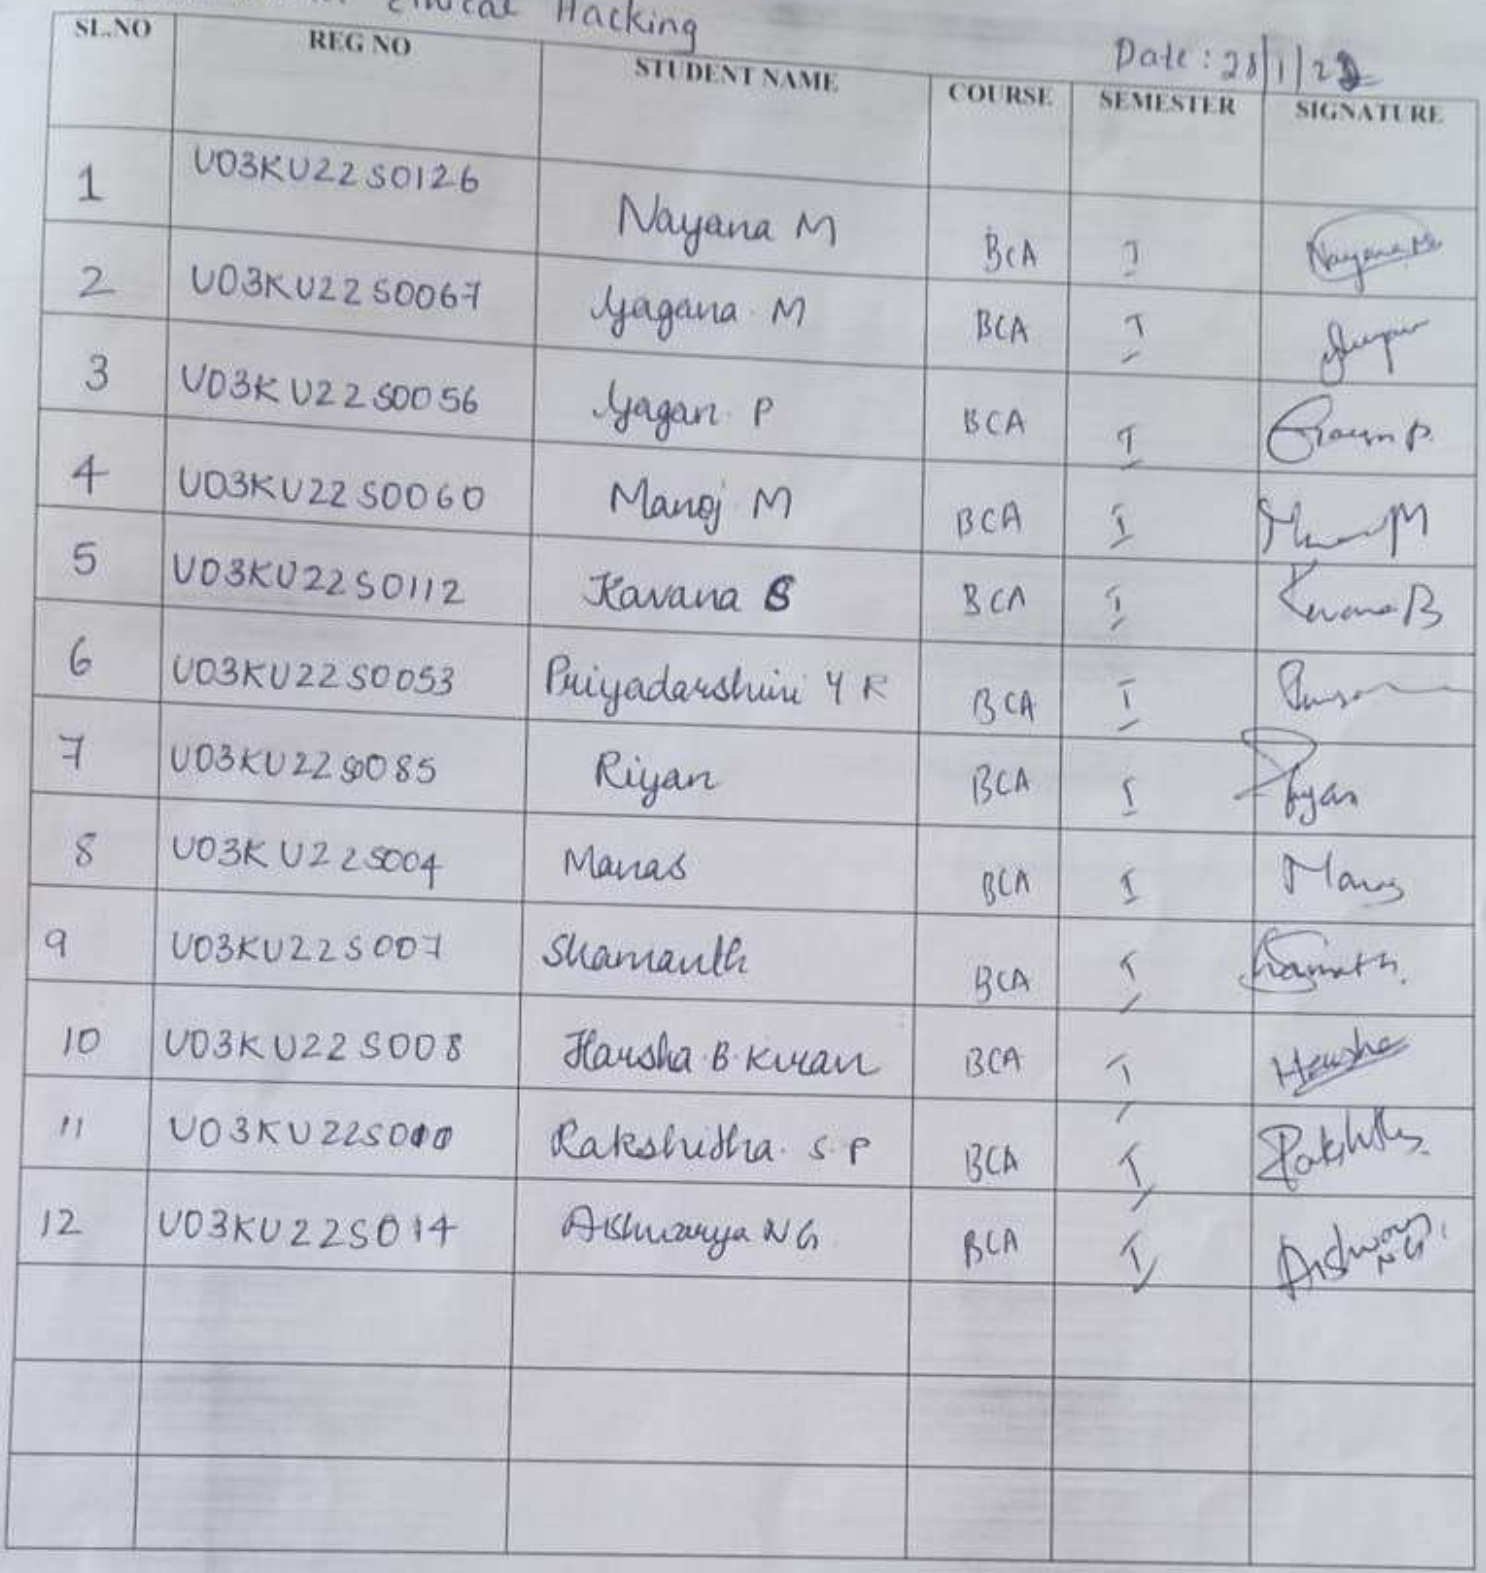 Ethical Hacking
Date: 28/1/23
SL.NO REG NO STUDENT NAME COURSE SEMESTER SIGNATURE
1 U03KU22S0126 Nayana M BCA I Nayana M
2 U03KU22S0067 Gagana M BCA I
3 U03KU22S0056 Gagan P BCA I
4 U03KU22S0060 Manoj M BCA I
5 U03KU22S0112 Kavana B BCA I Kavana B
6 U03KU22S0053 Priyadarshini Y R BCA I
7 U03KU22S0085 Riyan BCA I Riyan
8 U03KU22S004 Manas BCA I Manas
9 U03KU22S007 Shamanth BCA I
10 U03KU22S008 Harsha B Kiran BCA I Harsha
11 U03KU22S010 Rakshitha S P BCA I
12 U03KU22S014 Aishwarya N G BCA I